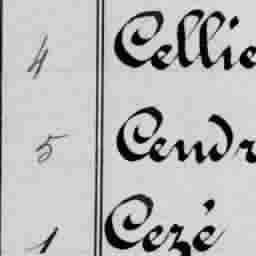 4 Cellie
5 Cendr
1 Cezé